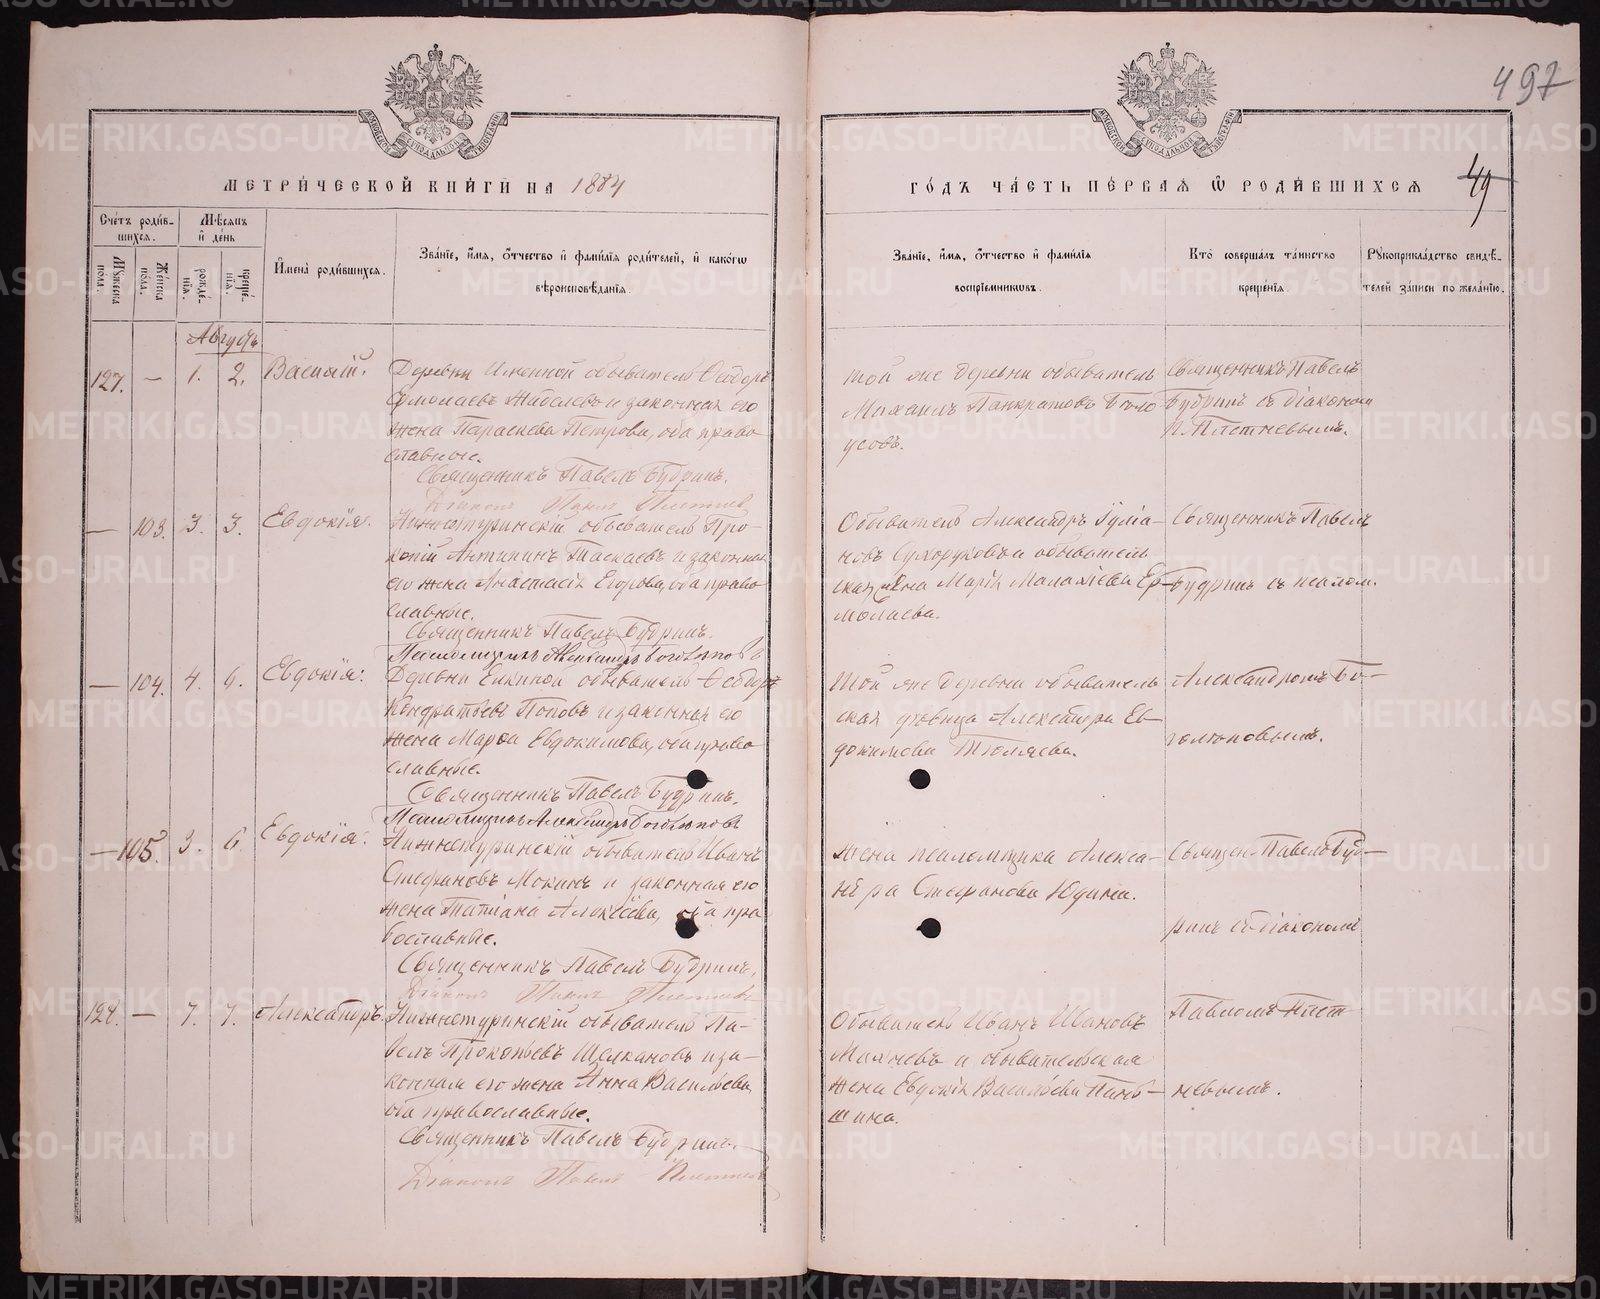 497
49
МЕТРИ́ЧЕСКОЙ КНИ́ГИ НА 1884
ГО́ДЪ ЧА́СТЬ ПЕ́РВАЯ Ѿ РОДИ́ВШИХСЯ
Сче́тъ роди́в-
шихся.
Му́жеска по́ла.
Же́нска по́ла.
Мѣ́сяцъ
и де́нь
рожде́нія.
креще́нія.
Имена́ роди́вшихся.
Зва́ніе, и́мя, о́тчество и фами́лія роди́телей, и како́гѡ
вѣроисповѣ́данія.
Зва́ніе, и́мя, о́тчество и фами́лія
воспріе́мниковъ.
Кто́ соверша́лъ та́инство
креще́нія.
Рукоприкла́дство свидѣ́-
телей за́писи по жела́нію.
Августъ
127. — 1. 2. Василій.
Деревни Именной обыватель Ѳеодоръ
Ермолаевъ и законная его
жена Параскева Петрова, оба право-
славные.
Священникъ Павелъ Будринъ.
Діаконъ Павелъ Плетневъ
той же деревни обыватель
Михаилъ Панкратовъ Бѣло
усовъ.
Священникъ Павелъ
Будринъ съ діакономъ
П. Плетневымъ.
— 103. 3. 3. Евдокія.
Нижнетуринскій обыватель Про-
копій Антипинъ Таскаевъ и законная
его жена Анастасія Егорова, оба право
славные.
Священникъ Павелъ Будринъ.
Псаломщикъ Александръ Боголюповъ
Обыватель Александръ Іуліа-
новъ Сухоруковъ и обыватель
ская жена Марія Малахіева Ер-
молаева.
Священникъ Павелъ
Будринъ съ псалом.
— 104. 4. 6. Евдокія.
Деревни Елкиной обыватель Ѳеодоръ
Кондратьевъ Поповъ и законная его
жена Марѳа Евдокимова, оба право
славные.
Священникъ Павелъ Будринъ.
Псаломщикъ Александръ Боголюповъ
Той же деревни обыватель
ская дѣвица Александра Ев-
докимова Тюляева.
Александромъ Бо-
голюповымъ.
— 105. 3. 6. Евдокія.
Нижнетуринскій обыватель Иванъ
Стефановъ Мокинъ и законная его
жена Татіана Алексѣева, оба пра
вославные.
Священникъ Павелъ Будринъ.
Діаконъ Павелъ Плетневъ
жена псаломщика Алекса-
ндра Стефанова Юдина.
Священ. Павелъ Буд-
ринъ съ діакономъ
128. — 7. 7. Александръ.
Нижнетуринскій обыватель Па-
велъ Прокопьевъ Шелкановъ и за-
конная его жена Анна Васильева,
оба православные.
Священникъ Павелъ Будринъ.
Діаконъ Павелъ Плетневъ
Обыватель Иванъ Ивановъ
и обывательская
жена Евдокія Васильева Пань-
шина.
Павломъ Плет-
невымъ.